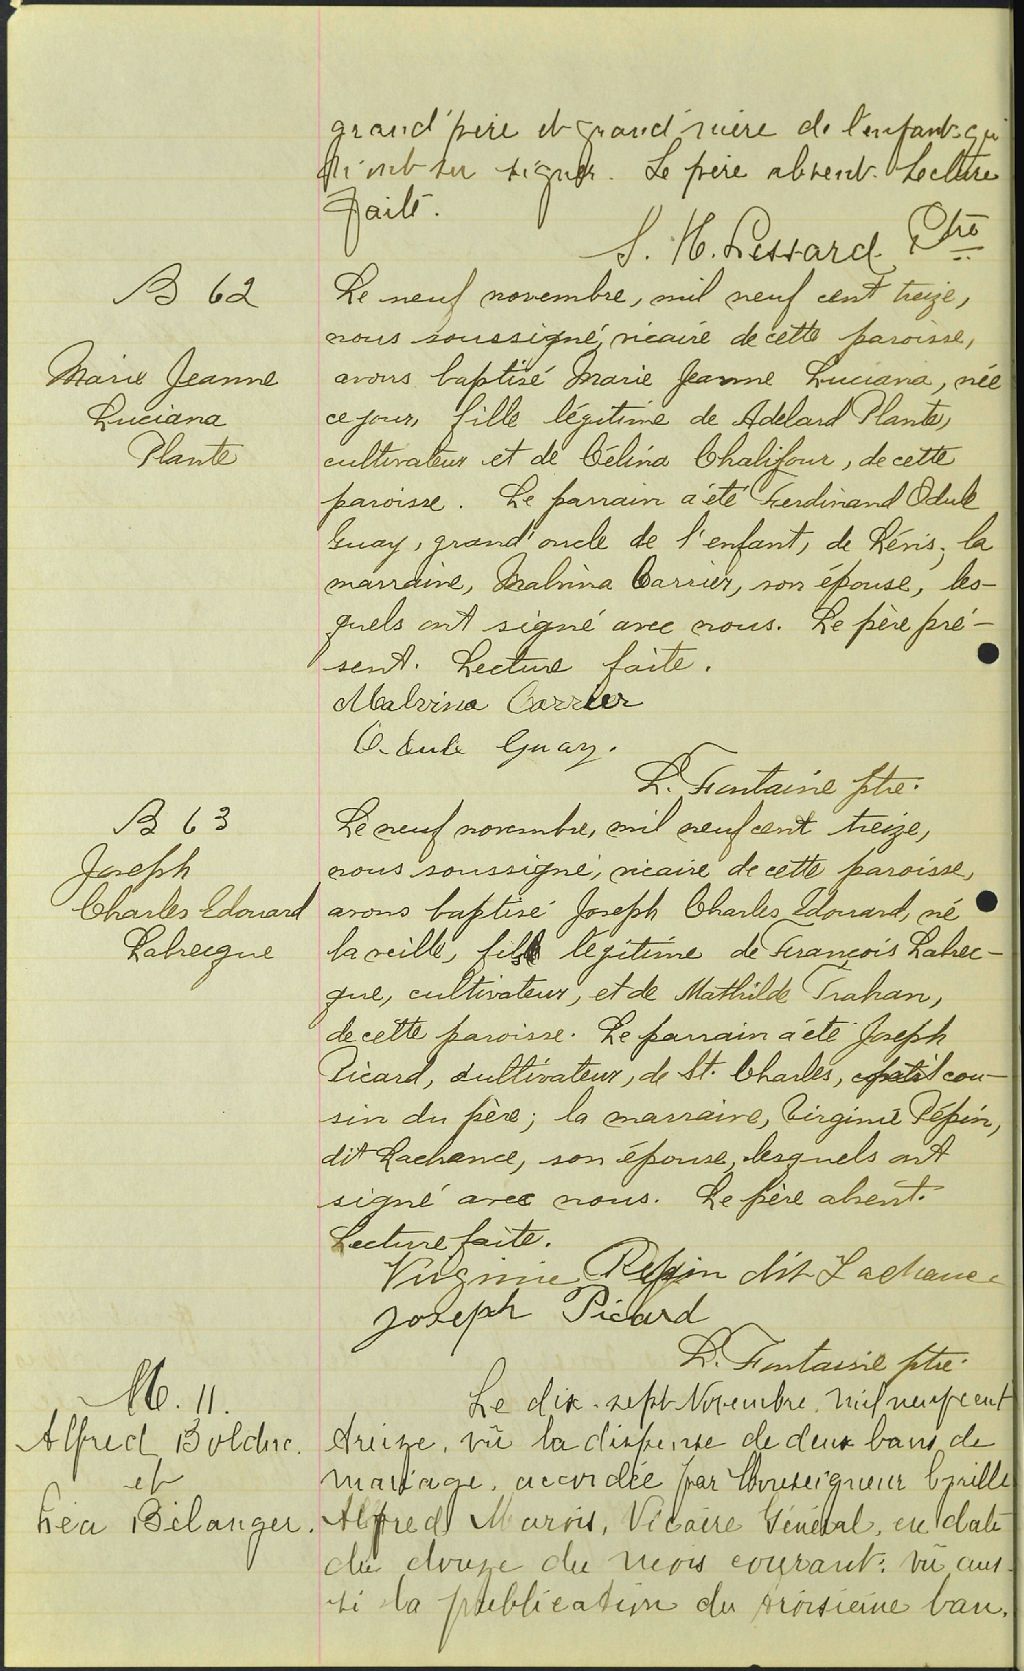 grand'père et grand'mère de l'enfant qui
n'ont su signer. Le père absent. Lecture
faite.
S. H. Lessard Ptre
B 62
Marie Jeanne
Luciana
Plante
Le neuf novembre, mil neuf cent treize,
nous soussigné, vicaire de cette paroisse,
avons baptisé Marie Jeanne Luciana, née
ce jour, fille légitime de Adelard Plante,
cultivateur et de Célina Chalifour, de cette
paroisse. Le parrain a été Ferdinand Odule
Guay, grand'oncle de l'enfant, de Lévis; la
marraine, Malvina Carrier, son épouse, les-
quels ont signé avec nous. Le père pré-
sent. Lecture faite.
Malvina Carrier
O. dule Guay.
L. Fontaine ptre.
B 63
Joseph
Charles Edouard
Labrecque
Le neuf novembre, mil neuf cent treize,
nous soussigné, vicaire de cette paroisse,
avons baptisé Joseph Charles Edouard, né
la veille, fils légitime de François Labrec-
que, cultivateur, et de Mathilde Trahan,
de cette paroisse. Le parrain a été Joseph
Picard, cultivateur, de St. Charles, petit cou-
sin du père; la marraine, Virginie Pépin,
dit Lachance, son épouse, lesquels ont
signé avec nous. Le père absent.
Lecture faite.
Virginie Pepin dit Lachance
Joseph Picard
L. Fontaine ptre.
M. 11.
Alfred Bolduc.
et
Léa Bélanger.
Le dix-sept Novembre, mil neuf cent
treize, vû la dispense de deux bans de
mariage, accordée par Monseigneur Cyrille
Alfred Marois, Vicaire Général, en date
du douze du mois courant: vû aus-
si la publication du troisième ban,